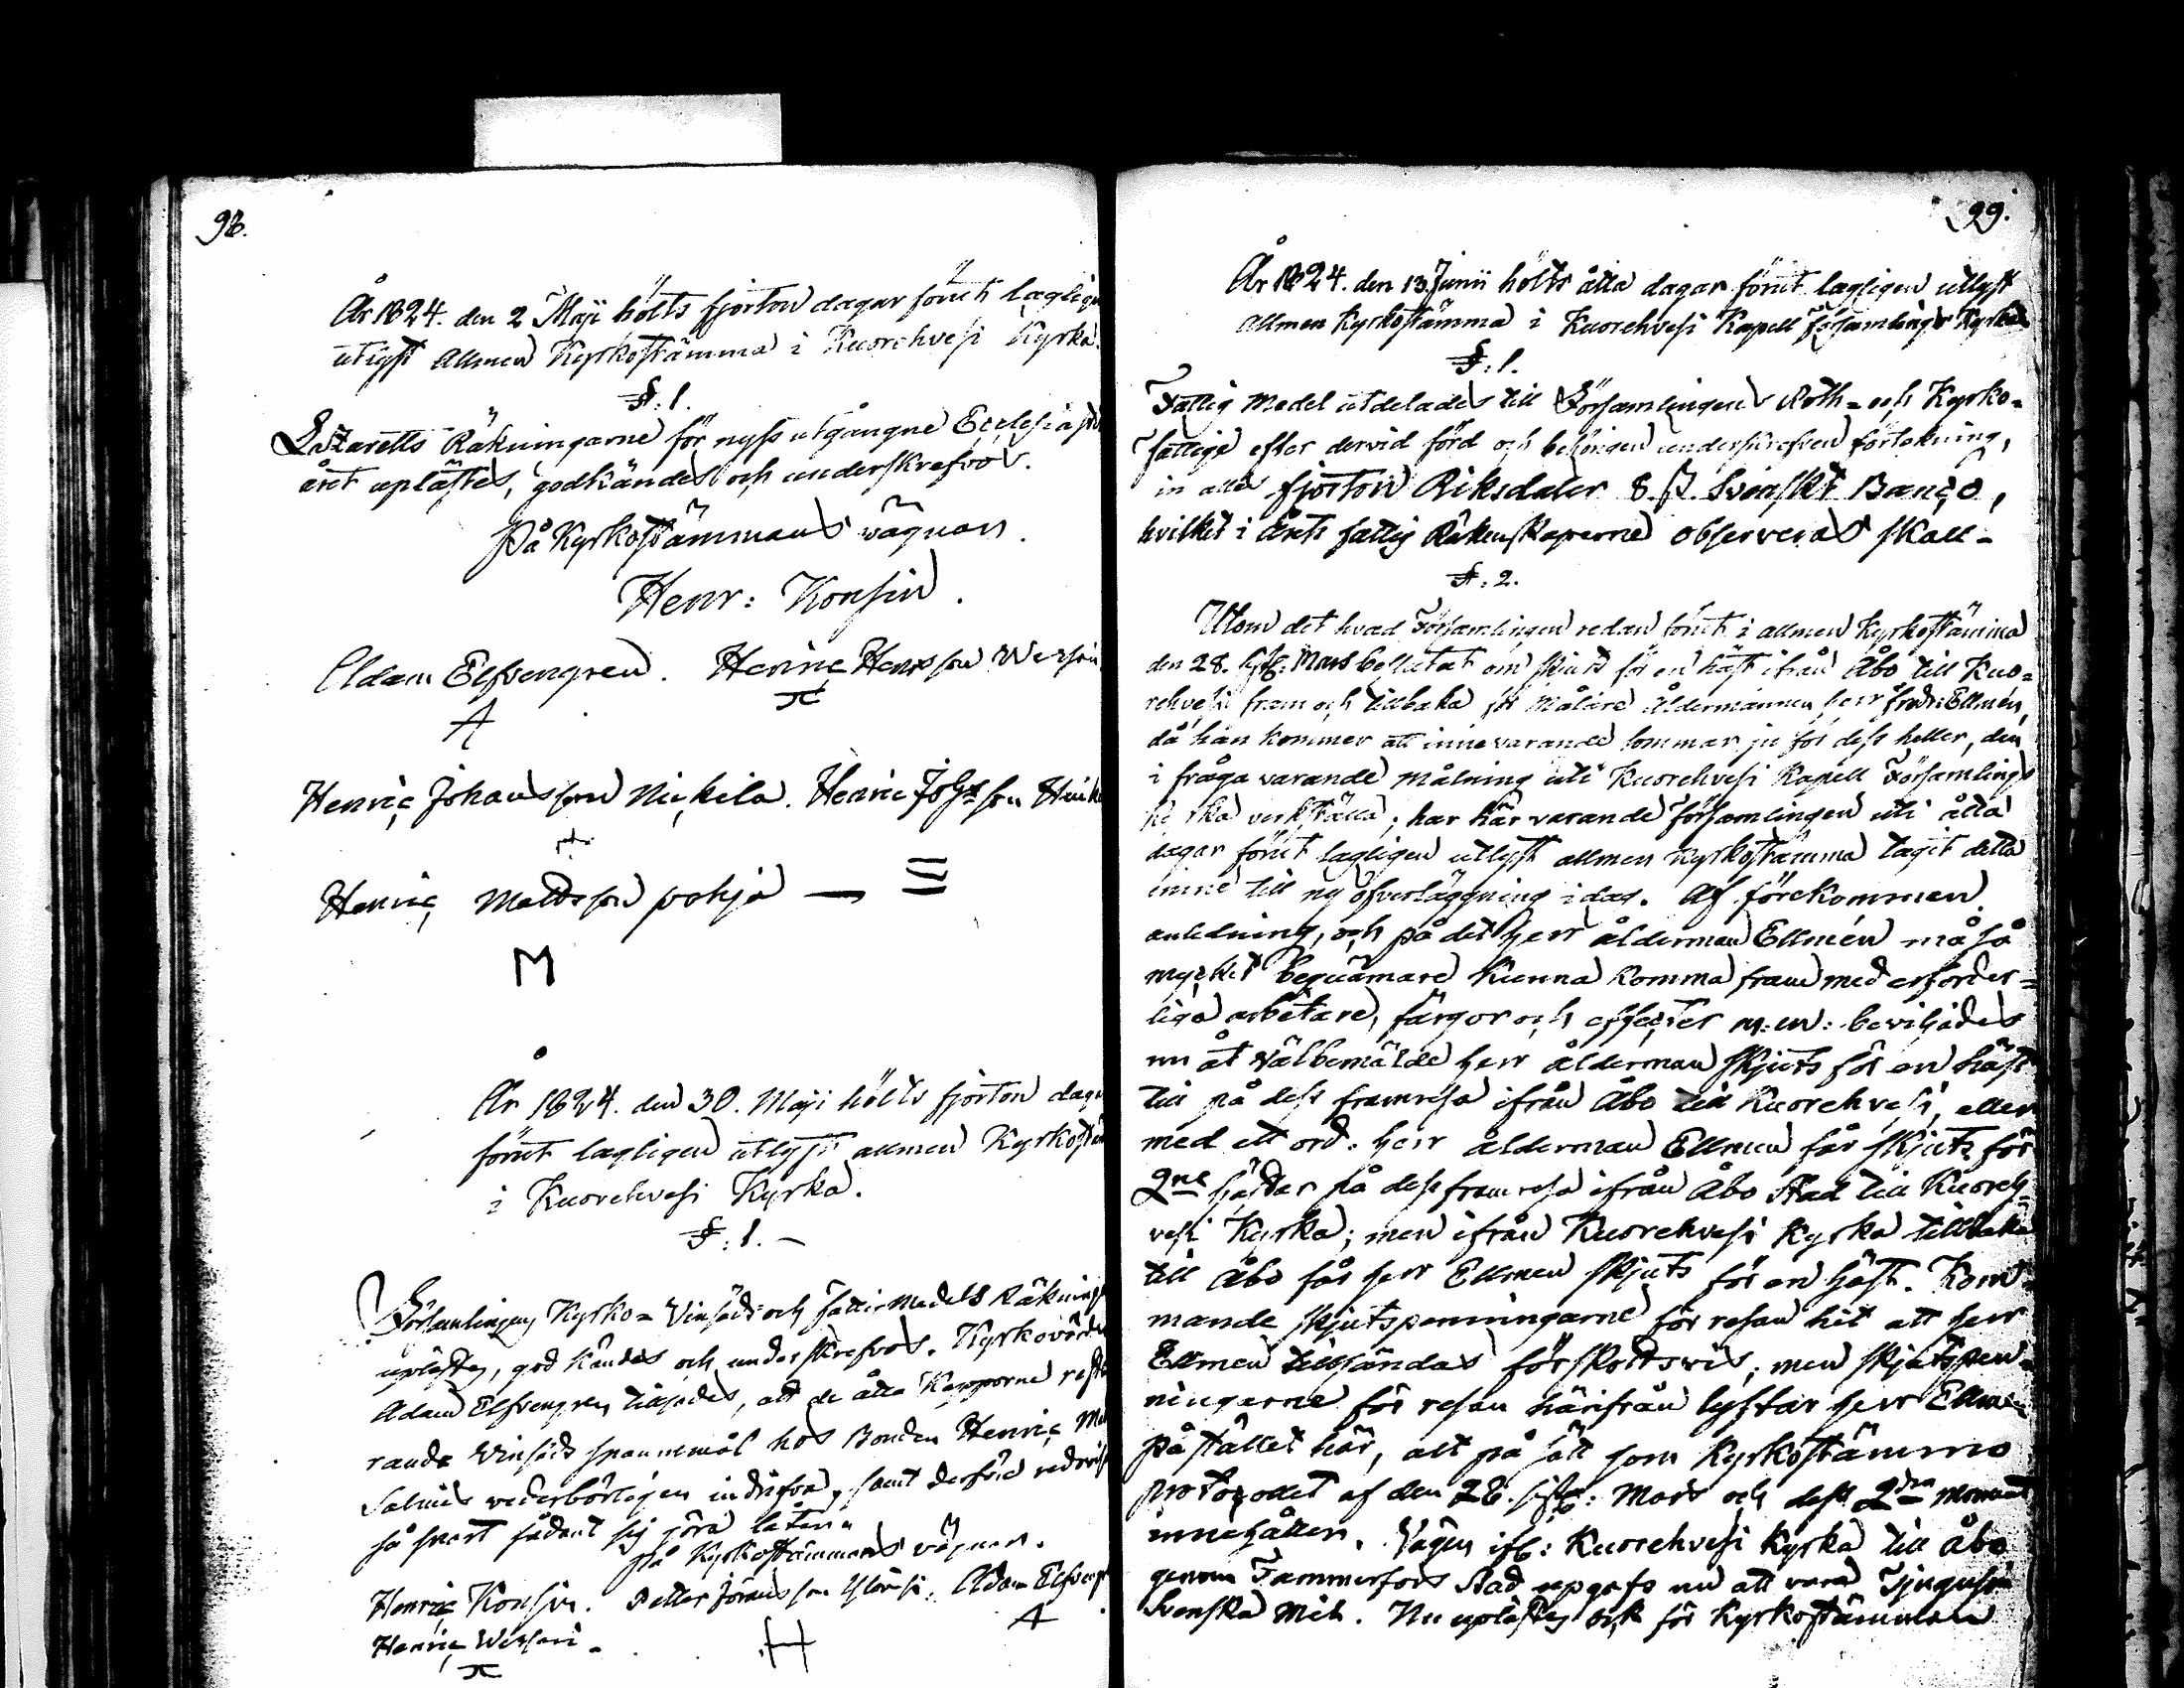 98.
År 1824. den 2 Maji hölts fjorton dagar förut laglige
utlyst allmen Kyrkostämma i Kuorehvesi Kyrka.
§: 1.
Lazaretts Räkningarne för nyss utgångne Ecclesiastik
året uplästes, godkändes och underskrefvos.
På Kyrkostämmans vägnar.
Henr: Konsin.
Adam Elfvengren. Henric Henrsson Wersoni
A
Henric Johansson Nickila. Henric Johsson
Henric Mattsson pohja —
M
År 1824. den 30. Maji hölts fjorton daga
förut lagligen utlyst allmen Kyrkostä
i Kuorehvesi Kyrka.
§: 1. –
Församlingens Kyrko- Vinsäds och fattig Medels Räkning
uplästes, god kändes och underskrefvos. Kyrkovärd
Adam Elfvengren tilsades, att de åtta Kapporne reste
rande Vinsäds spannemål hos Bonden Henric
vederbörligen indrifva, samt derföre redovis
så snart sådant sig göra låter.
På Kyrkostämmans vägnar.
Henric Konsin. Petter Jöransson Adam Elfveng
Henric Wersoni. H A
99.
År 1824. den 13 Junii hölts åtta dagar förut lagligen utlyst
allmen Kyrkostämma i Kuorehvesi Kapell Församlings Kyrka
§: 1.
Fattig Medel utdelades till Församlingens Roth- och Kyrko-
fattige efter dervid förd och behörigen underskrefven förtekning,
in alles fjorton Riksdaler 8. ß. Svenskt Banco,
hvilket i årets fattig Räkenskaperne observeras skall -
§: 2.
Utom det hvad Församlingen redan förut i allmen Kyrkostämma
den 28. sistl: Mars beslutat om skjuts för en häst ifrån Åbo till Kuo-
rehvesi fram och tillbaka för Målare Åldermannen herr Fredr: Ellmén,
då han kommer att innevarande sommar ju för dess heller, den
i fråga varande målning uti Kuorehvesi Kapell Församlings
kyrka verkställa; har härvarande församlingen uti åtta
dagar förut lagligen utlyst allmen Kyrkostämma tagit detta
ämne till ny öfverläggning idag. Af förekommen
anledning, och på det herr ålderman Ellmén må så
mycket beqvämare kunna komma fram med erforder-
liga arbetare, färgor och effecter m: m: beviljades
nu åt välbemälde herr ålderman skjuts för en häst
till på dess framresa ifrån Åbo till Kuorehvesi, eller
med ett ord: herr ålderman Ellmen får skjuts för
2ne hästar på dess framresa ifrån Åbo Stad till Kuoreh-
vesi Kyrka; men ifrån Kuorehvesi Kyrka tillbaka
till Åbo får herr Ellmen skjuts för en häst. Kom-
mande skjutspenningarne för resan hit att herr
Ellmen tillsändas förskottsvis; men skjutspen-
ningarne för resan härifrån lyftar herr Ellmen
på stället här, allt på sätt som Kyrkostämmo
protocollet af den 28. sistl: Mars och dess 2dra moment
innehåller. Vägen ifr: Kuorehvesi Kyrka till Åbo
genom Tammerfors Stad upgafs nu att vara Tjugufem
Svenska Mil. Nu uplästes ock för Kyrkostämman